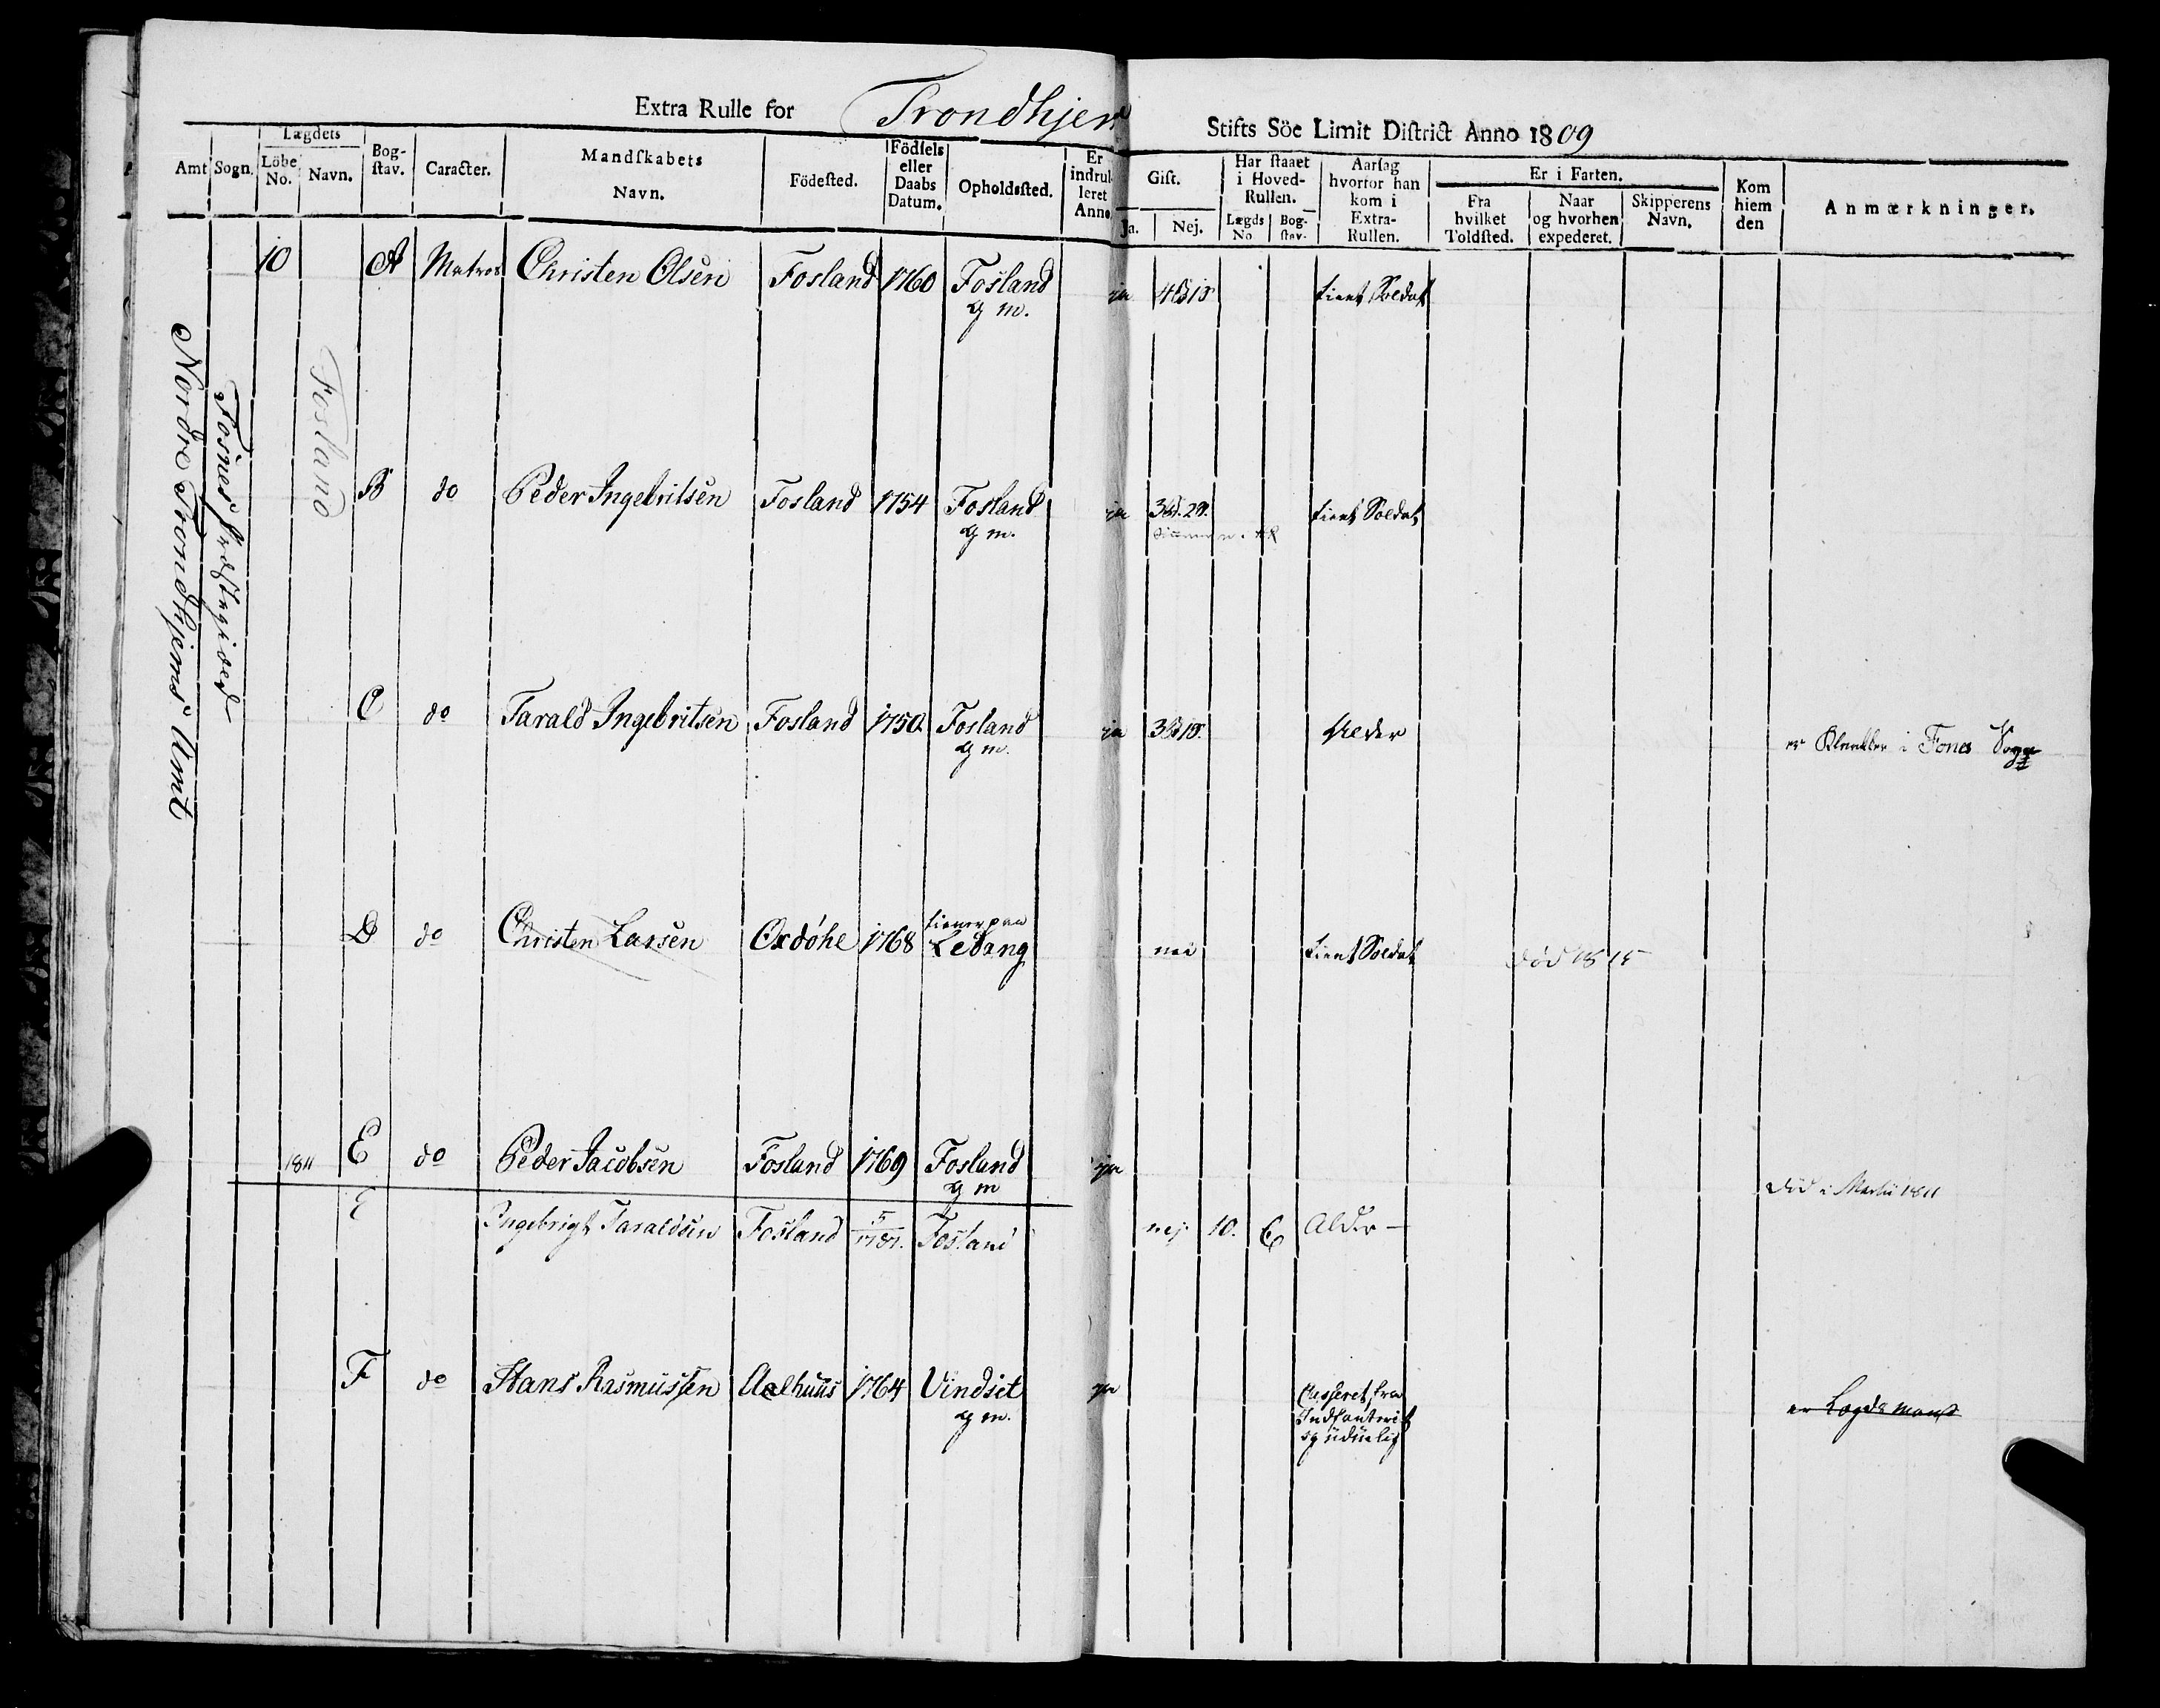 Extra Rulle for Trondhjem Stifts Söe Limit District Anno 1809
Amt Sogn. Lægdets Löbe No. Navn. Bog-stav. Caracter. Mandskabets Navn. Födested. Födsels eller Daabs Datum. Opholdssted. Er indrulleret Anno
Gift. Ja. Nej. Har staaet i Hoved-Rullen. Lægds No Bog-stav. Aarsag hvorfor han kom i Extra-Rullen. Er i Farten. Fra hvilket Toldsted. Naar og hvorhen expederet. Skipperens Navn. Kom hiem den Anmærkninger.
Nordre Trondhjems Amt
Fosnes Præstegield
Fosland
10 A Matros Christen Olsen Fosland 1760 Fosland ja tient Soldat
g m.
B do Peder Ingebritsen Fosland 1754 Fosland ja tient Soldat
g m.
C do Tarald Ingebritsen Fosland 1750 Fosland ja Alder er Klocker i Sogn
g m.
D do Christen Larsen Oxdöhe 1768 tiener paa Ledang nei tient Soldat död 1815
1811 E do Peder Jacobsen Fosland 1769 Fosland ja död i Martii 1811
g m
E Ingebrigt Taraldsen Fosland 5/1781. Fosland nej 10. C Alder
F do Hans Rasmussen Aalhuus 1764 Vindset ja Casseret fra
g m. Indfanteriet
og udüelig
er Lægdsmand